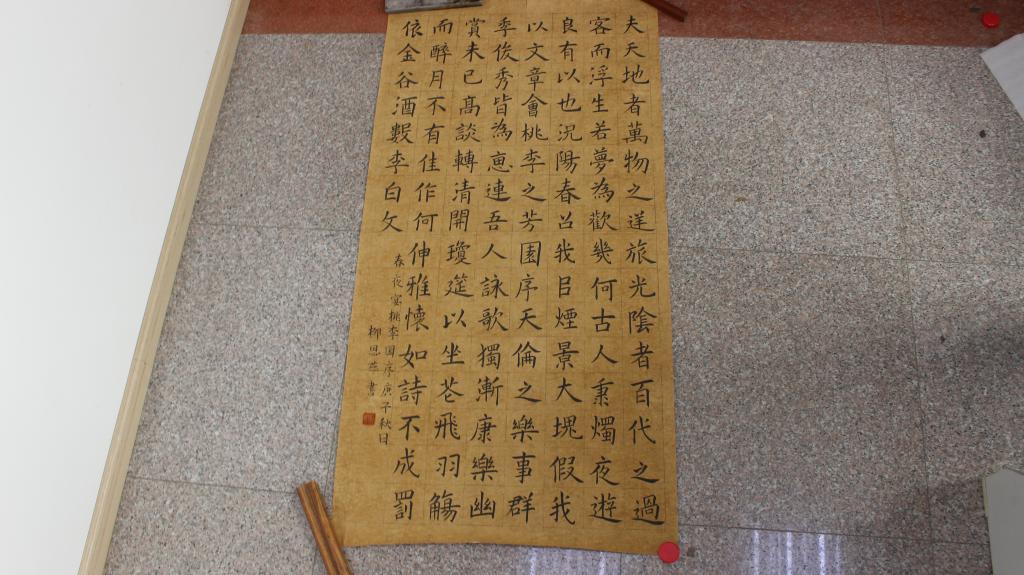 夫天地者萬物之逆旅光陰者百代之過
客而浮生若夢為歡幾何古人秉燭夜遊
良有以也況陽春召我㠯煙景大塊假我
以文章會桃李之芳園序天倫之樂事群
季俊秀皆為恵連吾人詠歌獨漸康樂幽
賞未已髙談轉清開瓊筵以坐花飛羽觴
而醉月不有佳作何伸雅懷如詩不成罰
依金谷酒數李白文
春夜宴桃李園序庚子秋日
柳書